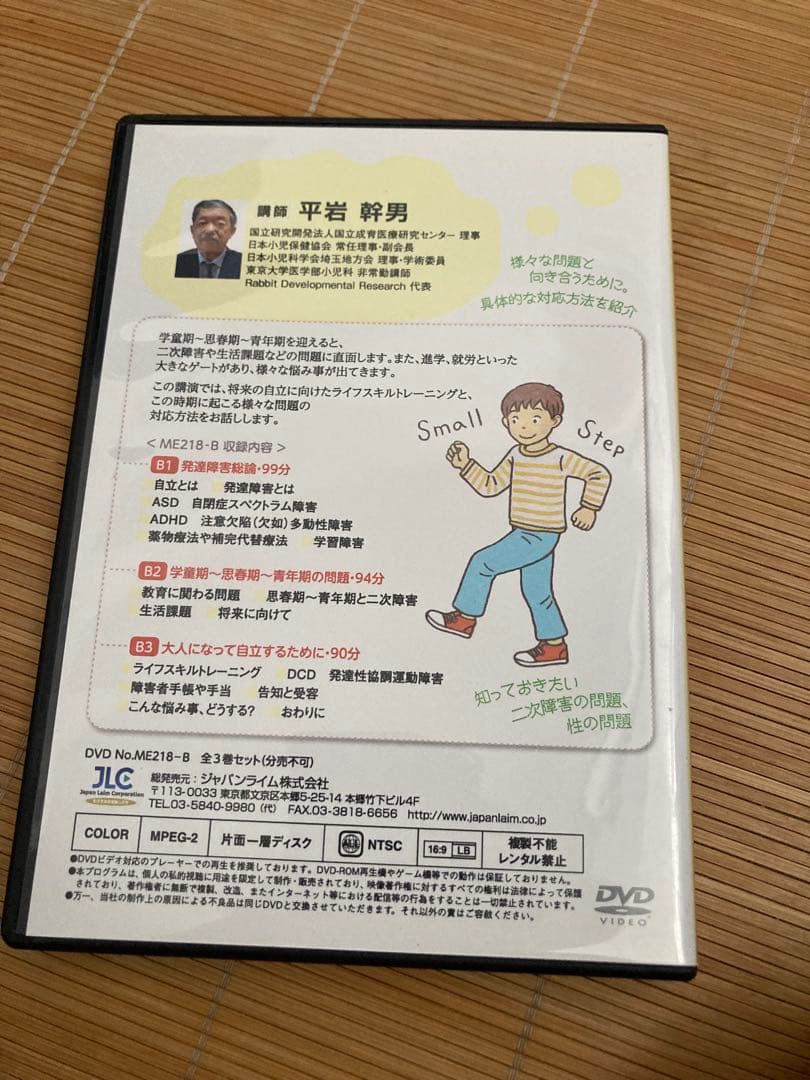 講師 平岩 幹男
国立研究開発法人国立成育医療研究センター 理事
日本小児保健協会 常任理事・副会長
日本小児科学会埼玉地方会 理事・学術委員
東京大学医学部小児科 非常勤講師
Rabbit Developmental Research 代表
様々な問題と
向き合うために。
具体的な対応方法を紹介
学童期～思春期～青年期を迎えると、
二次障害や生活課題などの問題に直面します。また、進学、就労といった
大きなゲートがあり、様々な悩み事が出てきます。
この講演では、将来の自立に向けたライフスキルトレーニングと、
この時期に起こる様々な問題の
対応方法をお話しします。
Small Step
< ME218-B 収録内容 >
B1 発達障害総論・99分
自立とは 発達障害とは
ASD 自閉症スペクトラム障害
ADHD 注意欠陥(欠如)多動性障害
薬物療法や補完代替療法 学習障害
B2 学童期～思春期～青年期の問題・94分
教育に関わる問題 思春期～青年期と二次障害
生活課題 将来に向けて
B3 大人になって自立するために・90分
ライフスキルトレーニング DCD 発達性協調運動障害
障害者手帳や手当 告知と受容
こんな悩み事、どうする? おわりに
知っておきたい
二次障害の問題、
性の問題
DVD No.ME218-B 全3巻セット(分売不可)
JLC
Japan Laim Corporation
総発売元：ジャパンライム株式会社
〒113-0033 東京都文京区本郷5-25-14 本郷竹下ビル4F
TEL.03-5840-9980（代） FAX.03-3818-6656 http://www.japanlaim.co.jp
COLOR MPEG-2 片面一層ディスク ALL NTSC 16:9 LB 複製不能
レンタル禁止
●DVDビデオ対応のプレーヤーでの再生を推奨しております。DVD-ROM再生機やゲーム機等での動作は保証しておりません。
●本プログラムは、個人の私的視聴に用途を限定して制作・販売されており、映像著作権に対するすべての権利は法律によって保護
されており、著作権者に無断で複製、改造、またインターネット等における配信等の行為をすることは一切禁止されています。
●万一、当社の制作上の原因による不良品は同じDVDと交換させていただきます。それ以外の責はご容赦ください。
DVD
VIDEO